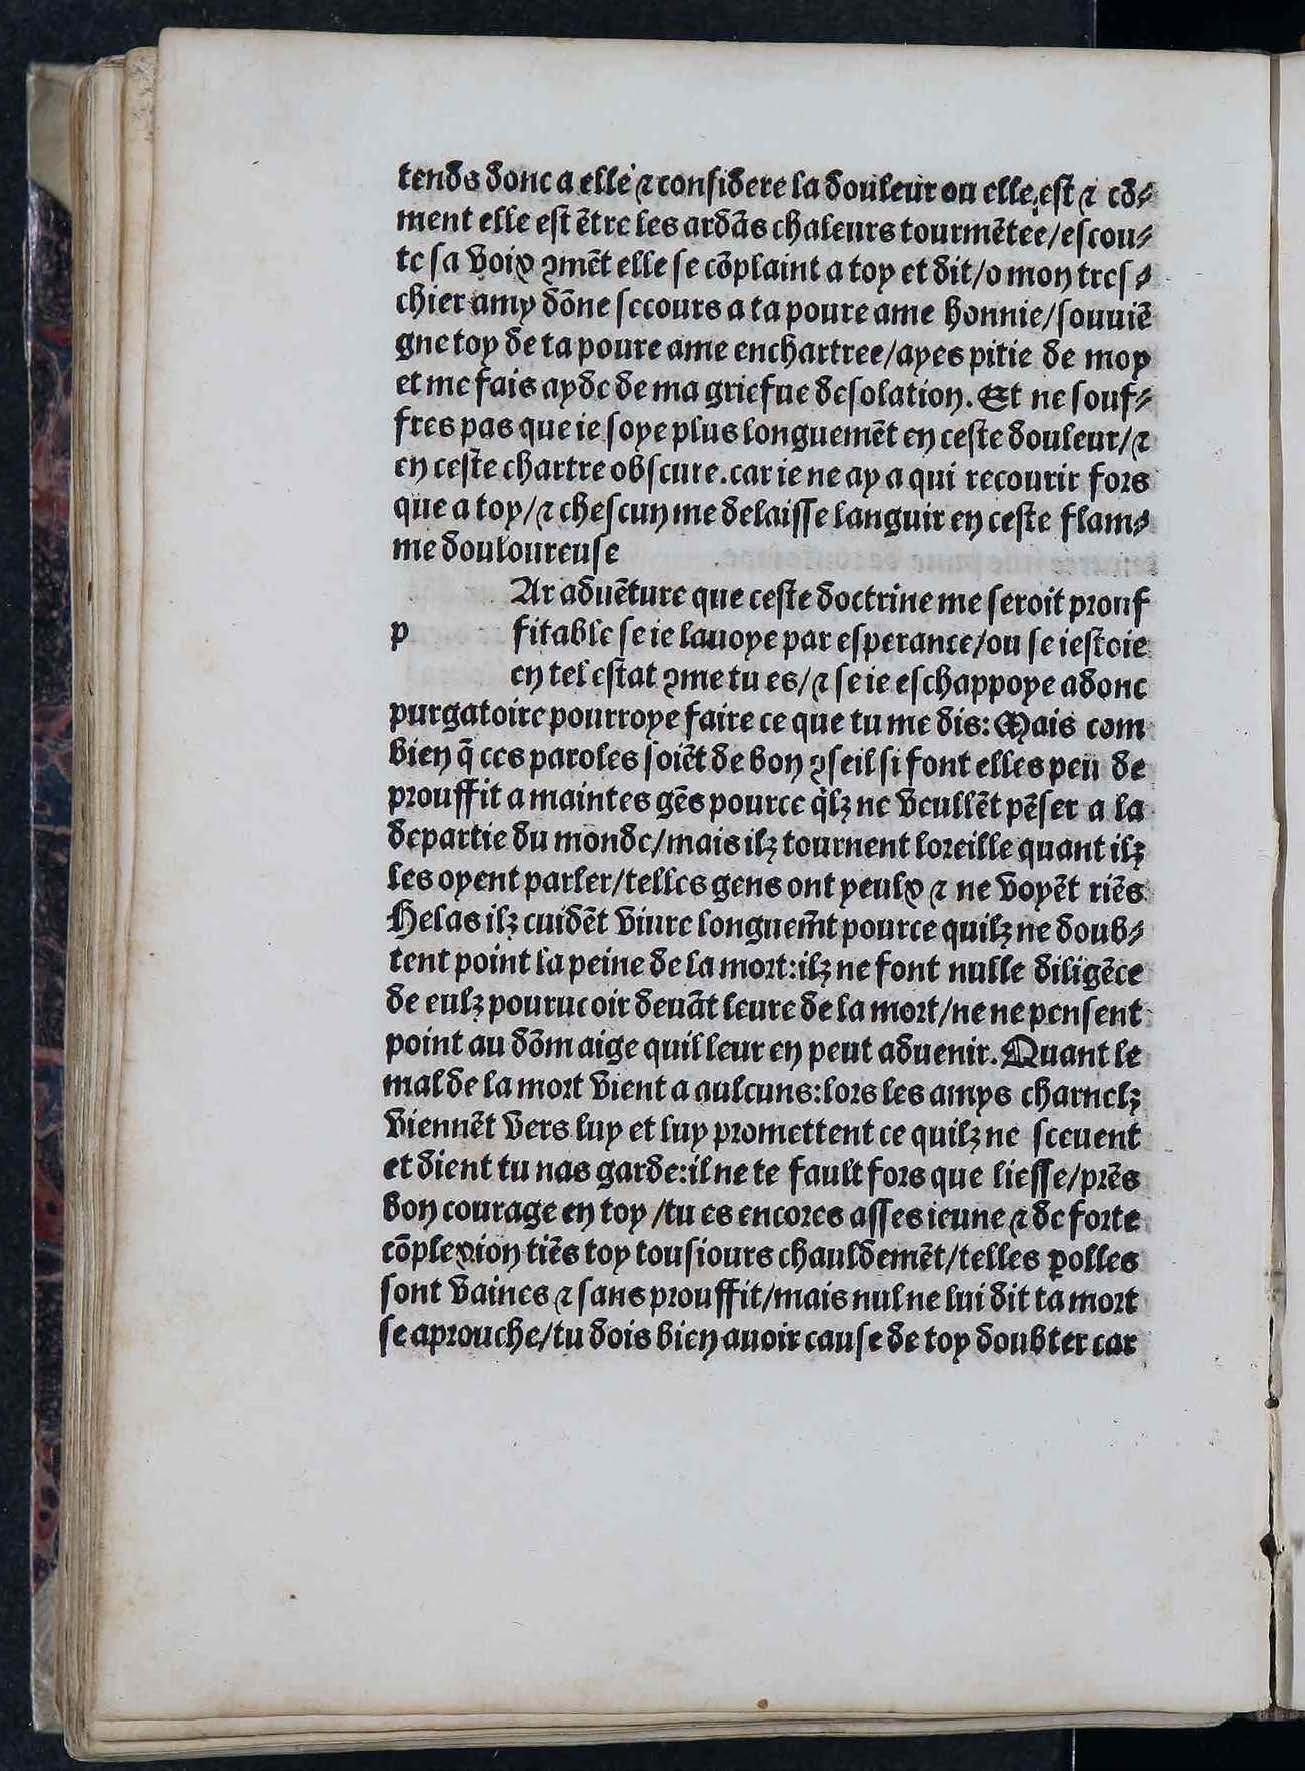 tends donc a elle ⁊ considere la douleur ou elle est ⁊ cõ⸗
ment elle est ẽtre les ardãs chaleurs tourmẽtee/escou⸗
te sa voix ꝯmẽt elle se cõplaint a toy et dit/o mon tres⸗
chier amy dõne secours a ta poure ame honnie/souuiẽ
gne toy de ta poure ame enchartree/ayes pitie de moy
et me fais ayde de ma griefue desolation. Et ne souf⸗
fres pas que ie soye plus longuemẽt en ceste douleur/⁊
en ceste chartre obscure. car ie ne ay a qui recourir fors
que a toy/⁊ chescun me delaisse languir en ceste flam⸗
me douloureuse
Ar aduẽture que ceste doctrine me seroit prouf
p fitable se ie lauoye par esperance/ou se iestoie
en tel estat ꝯme tu es/⁊ se ie eschappoye adonc
purgatoire pourroye faire ce que tu me dis: Mais com
bien q̃ ces paroles soiẽt de bon ꝯseil si font elles peu de
prouffit a maintes gẽs pource q̃lz ne veullẽt pẽser a la
departie du monde/mais ilz tournent loreille quant ilz
les oyent parler/telles gens ont yeulx ⁊ ne voyẽt riẽs
Helas ilz cuidẽt viure longuem̃t pource quilz ne doub⸗
tent point la peine de la mort: ilz ne font nulle diligẽce
de eulz pourueoir deuãt leure de la mort/ne ne pensent
point au dõmaige quil leur en peut aduenir. Quant le
mal de la mort vient a aulcuns: lors les amys charnelz
viennẽt vers luy et luy promettent ce quilz ne sceuent
et dient tu nas garde: il ne te fault fors que liesse/prẽs
bon courage en toy/tu es encores asses ieune ⁊ de forte
cõplexion tiẽs toy tousiours chauldemẽt/telles ꝑolles
sont vaines ⁊ sans prouffit/mais nul ne lui dit ta mort
se aprouche/tu dois bien auoir cause de toy doubter car